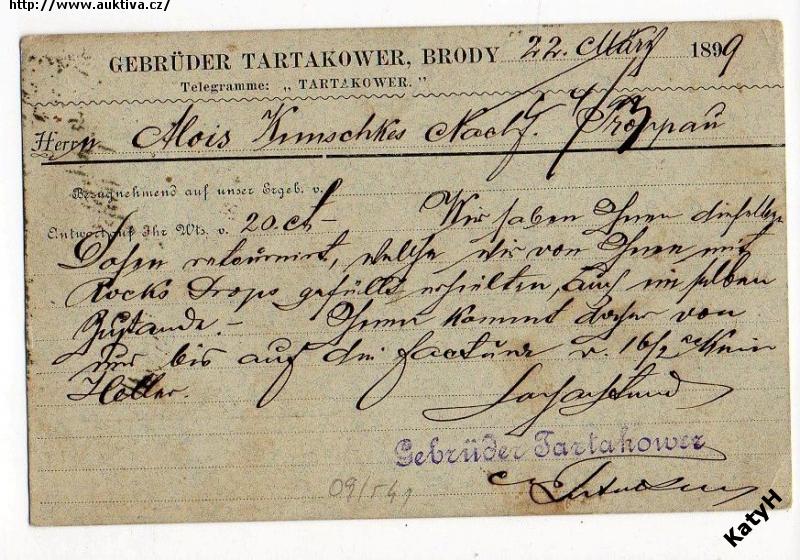 http://www.auktiva.cz/
GEBRÜDER TARTAKOWER, BRODY 22. März 1899
Telegramme: „TARTAKOWER."
Herrn Alois Kunschkes Nachf. Troppau
Bezugnehmend auf unser Ergeb. v.
Entwort auf Ihr Wts. v. 20. ct – Wir haben Ihnen dieselben
Dosen retournirt, welche wir von Ihnen mit
Rocks Drops gefüllt erhielten, auch im selben
Zustande. – Ihnen kommt daher von
uns bis auf die Factura v. 16/2 kein
Heller.
Hochachtend
Gebrüder Tartakower
09/154
KatyH